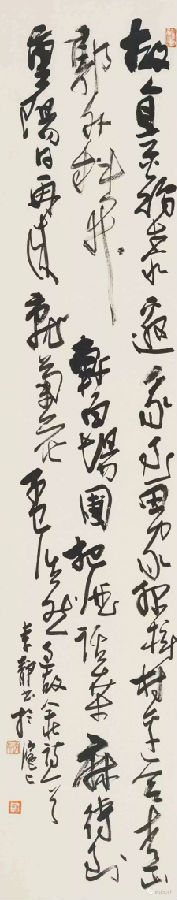 故人具雞黍邀我至田家綠樹村邊合青山
郭外斜開軒面場圃把酒話桑麻待到
重陽日還來就菊花孟浩然過故人莊詩一首
李靜書於滬上